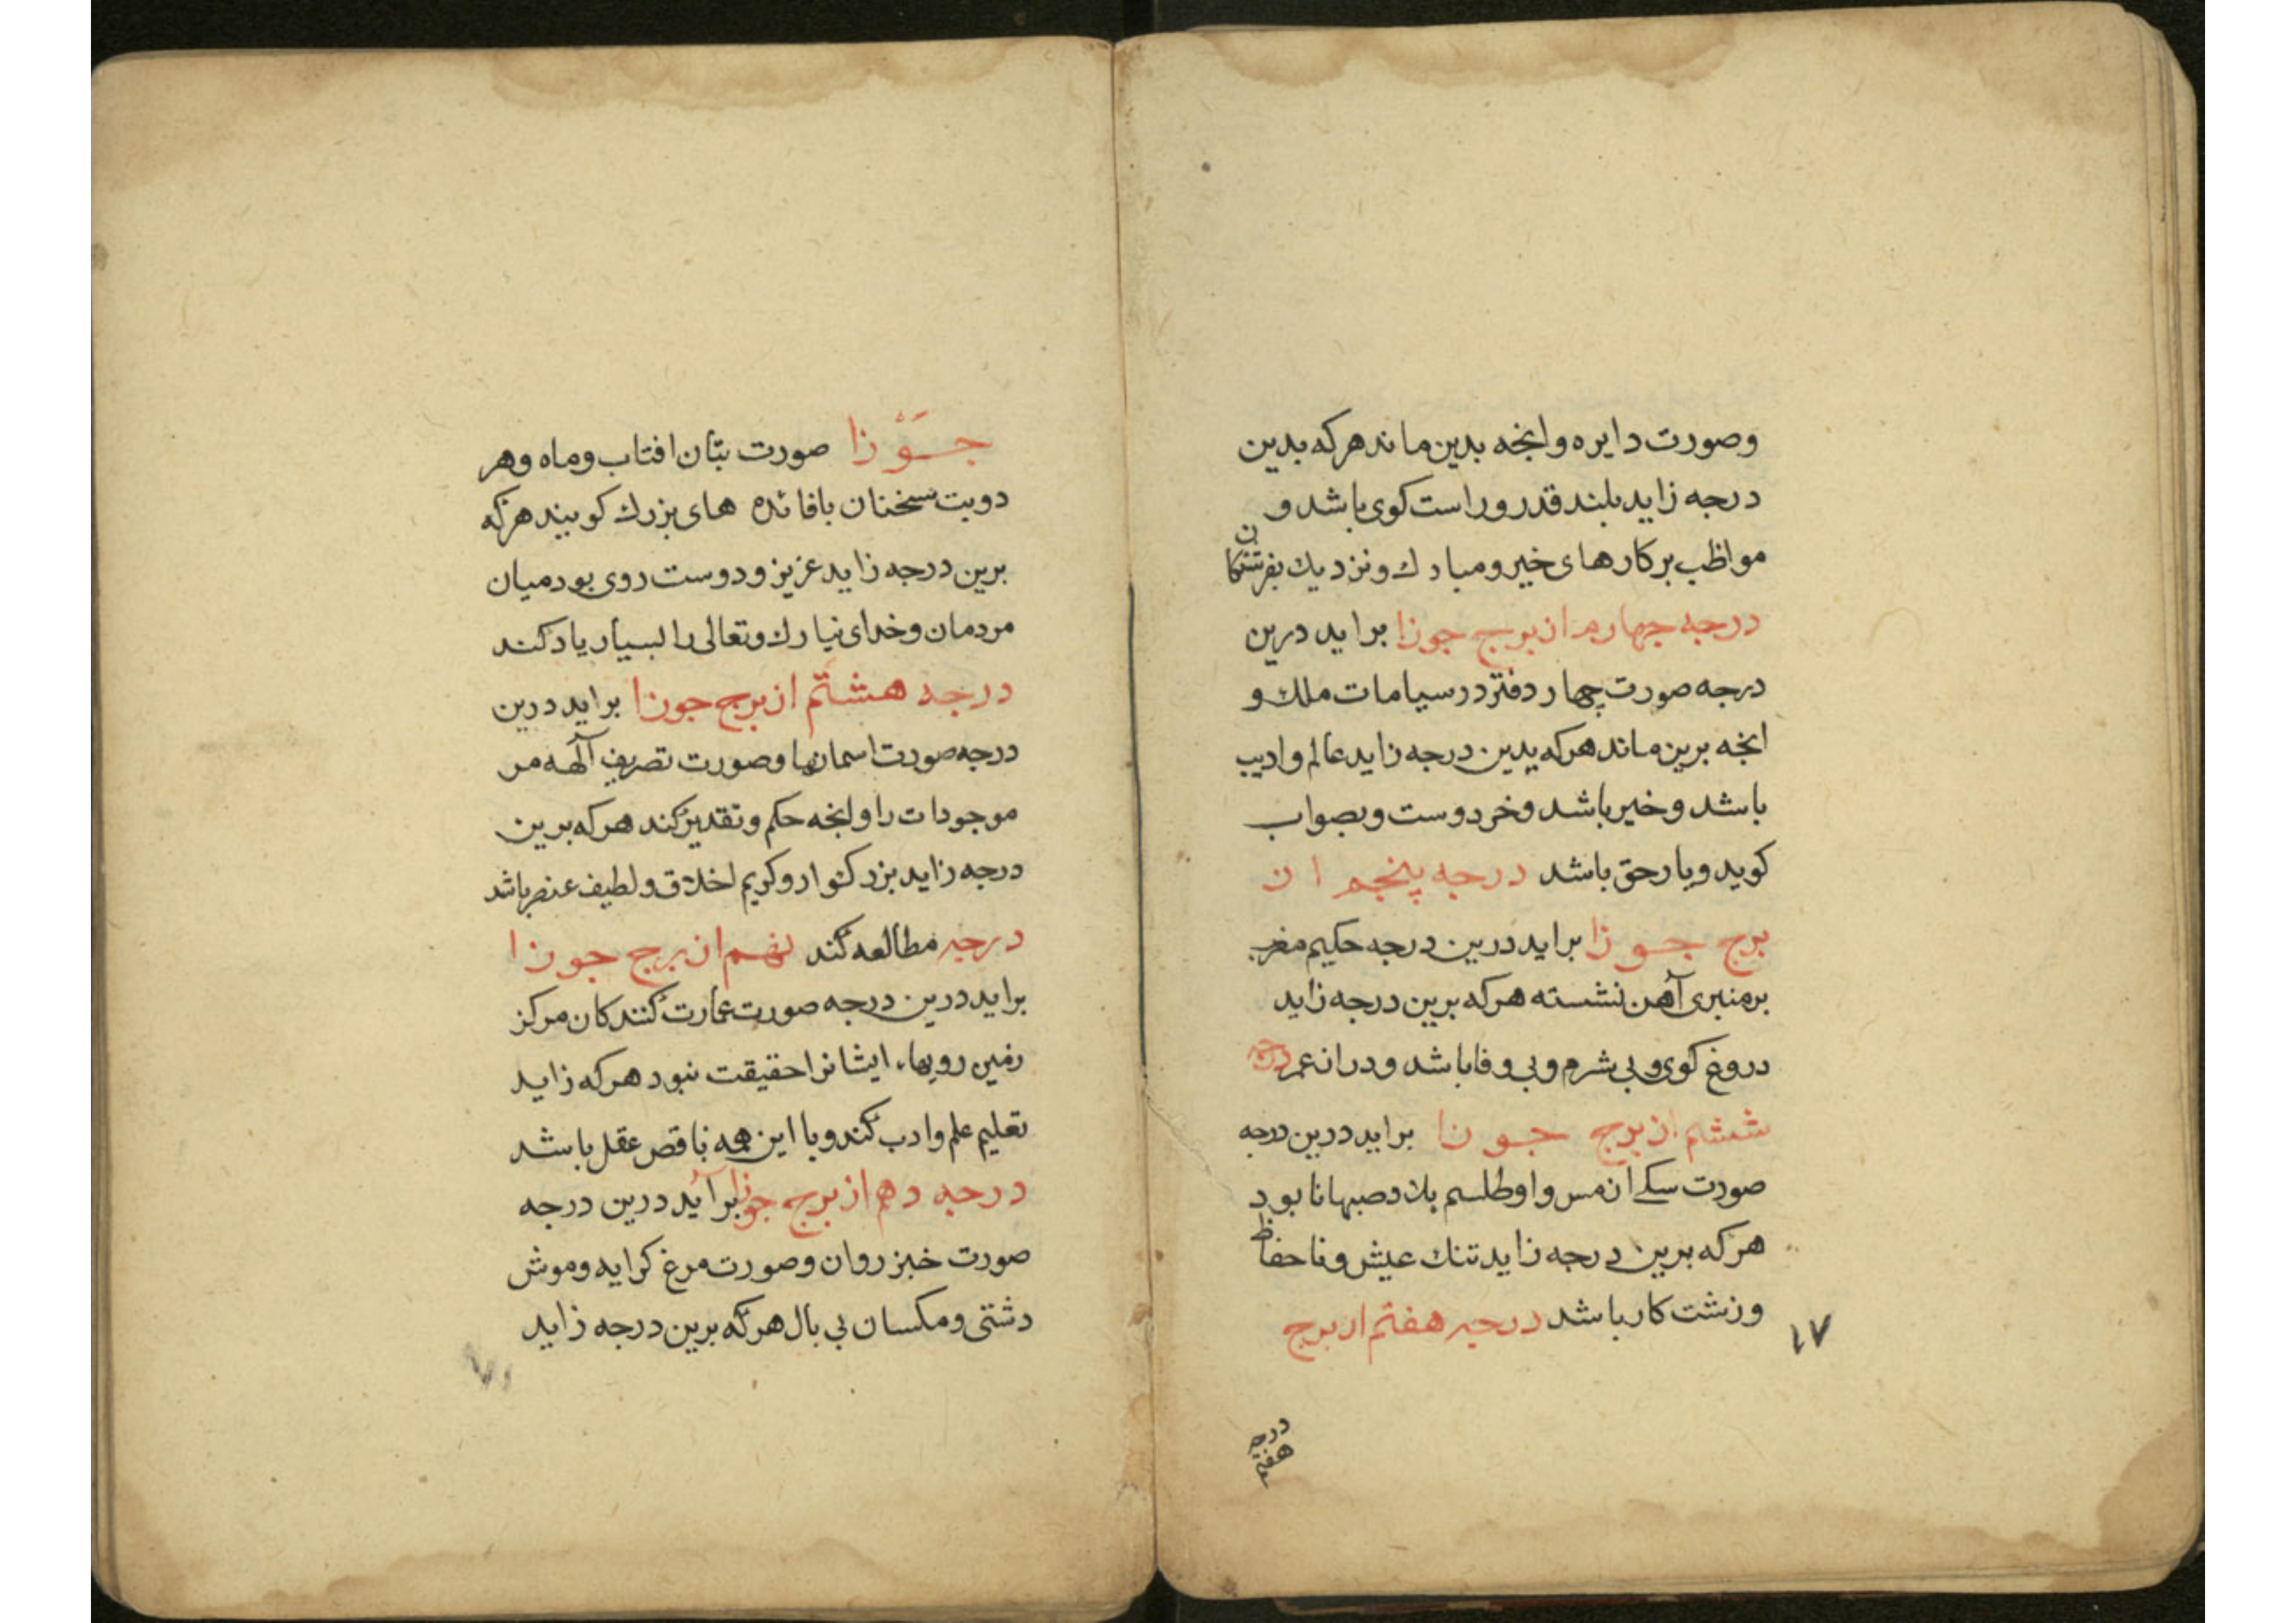 وصورت دایره وانچه بدین ماند هرکه بدین
درجه زاید بلند قدر وراست کوی باشد و
مواظب برکارهای خیر ومبارك ونزدیك بفرشتکان
درجه چهارم از برج جوزا براید درین
درجه صورت چهار دفتر در سیاسات ملك و
انچه برین ماند هرکه بدین درجه زاید عالم وادیب
باشد وخیر باشد وخر دوست وبصواب
کوید ویار حق باشد درجه پنجم از
برج جوزا براید درین درجه حکیم مغرب
برمنبری آهن نشسته هرکه برین درجه زاید
دروغ کوی وبی شرم وبی وفا باشد ودراز عمر درجه
ششم از برج جوزا براید درین درجه
صورت سکی از مس واو طلسم بلاد صبهانا بود
هرکه برین درجه زاید تنك عیش وناحفاظ
وزشت کار باشد درجه هفتم از برج
۱۷
درجه
هفتم
جوزا صورت بتان افتاب وماه وهر
دو بت سخنان بافائده های بزرك کویند هرکه
برین درجه زاید عزیز ودوست روی بود میان
مردمان وخدای تبارك وتعالی را بسیار یاد کند
درجه هشتم از برج جوزا براید درین
درجه صورت اسمانها وصورت تصریف آلهه مر
موجودات را وانچه حکم وتقدیر کند هرکه برین
درجه زاید بزرکوار وکریم اخلاق ولطیف عنصر باشد
درجه مطالعه کند نهم از برج جوزا
براید درین درجه صورت عمارت کنندکان مرکز
زمین رویها، ایشانرا حقیقت نبود هرکه زاید
تعلیم علم وادب کند وبا این همه ناقص عقل باشد
درجه دهم از برج جوزا برآید درین درجه
صورت خبز روان وصورت مرغ کرایه وموش
دشتی ومکسان بی بال هرکه برین درجه زاید